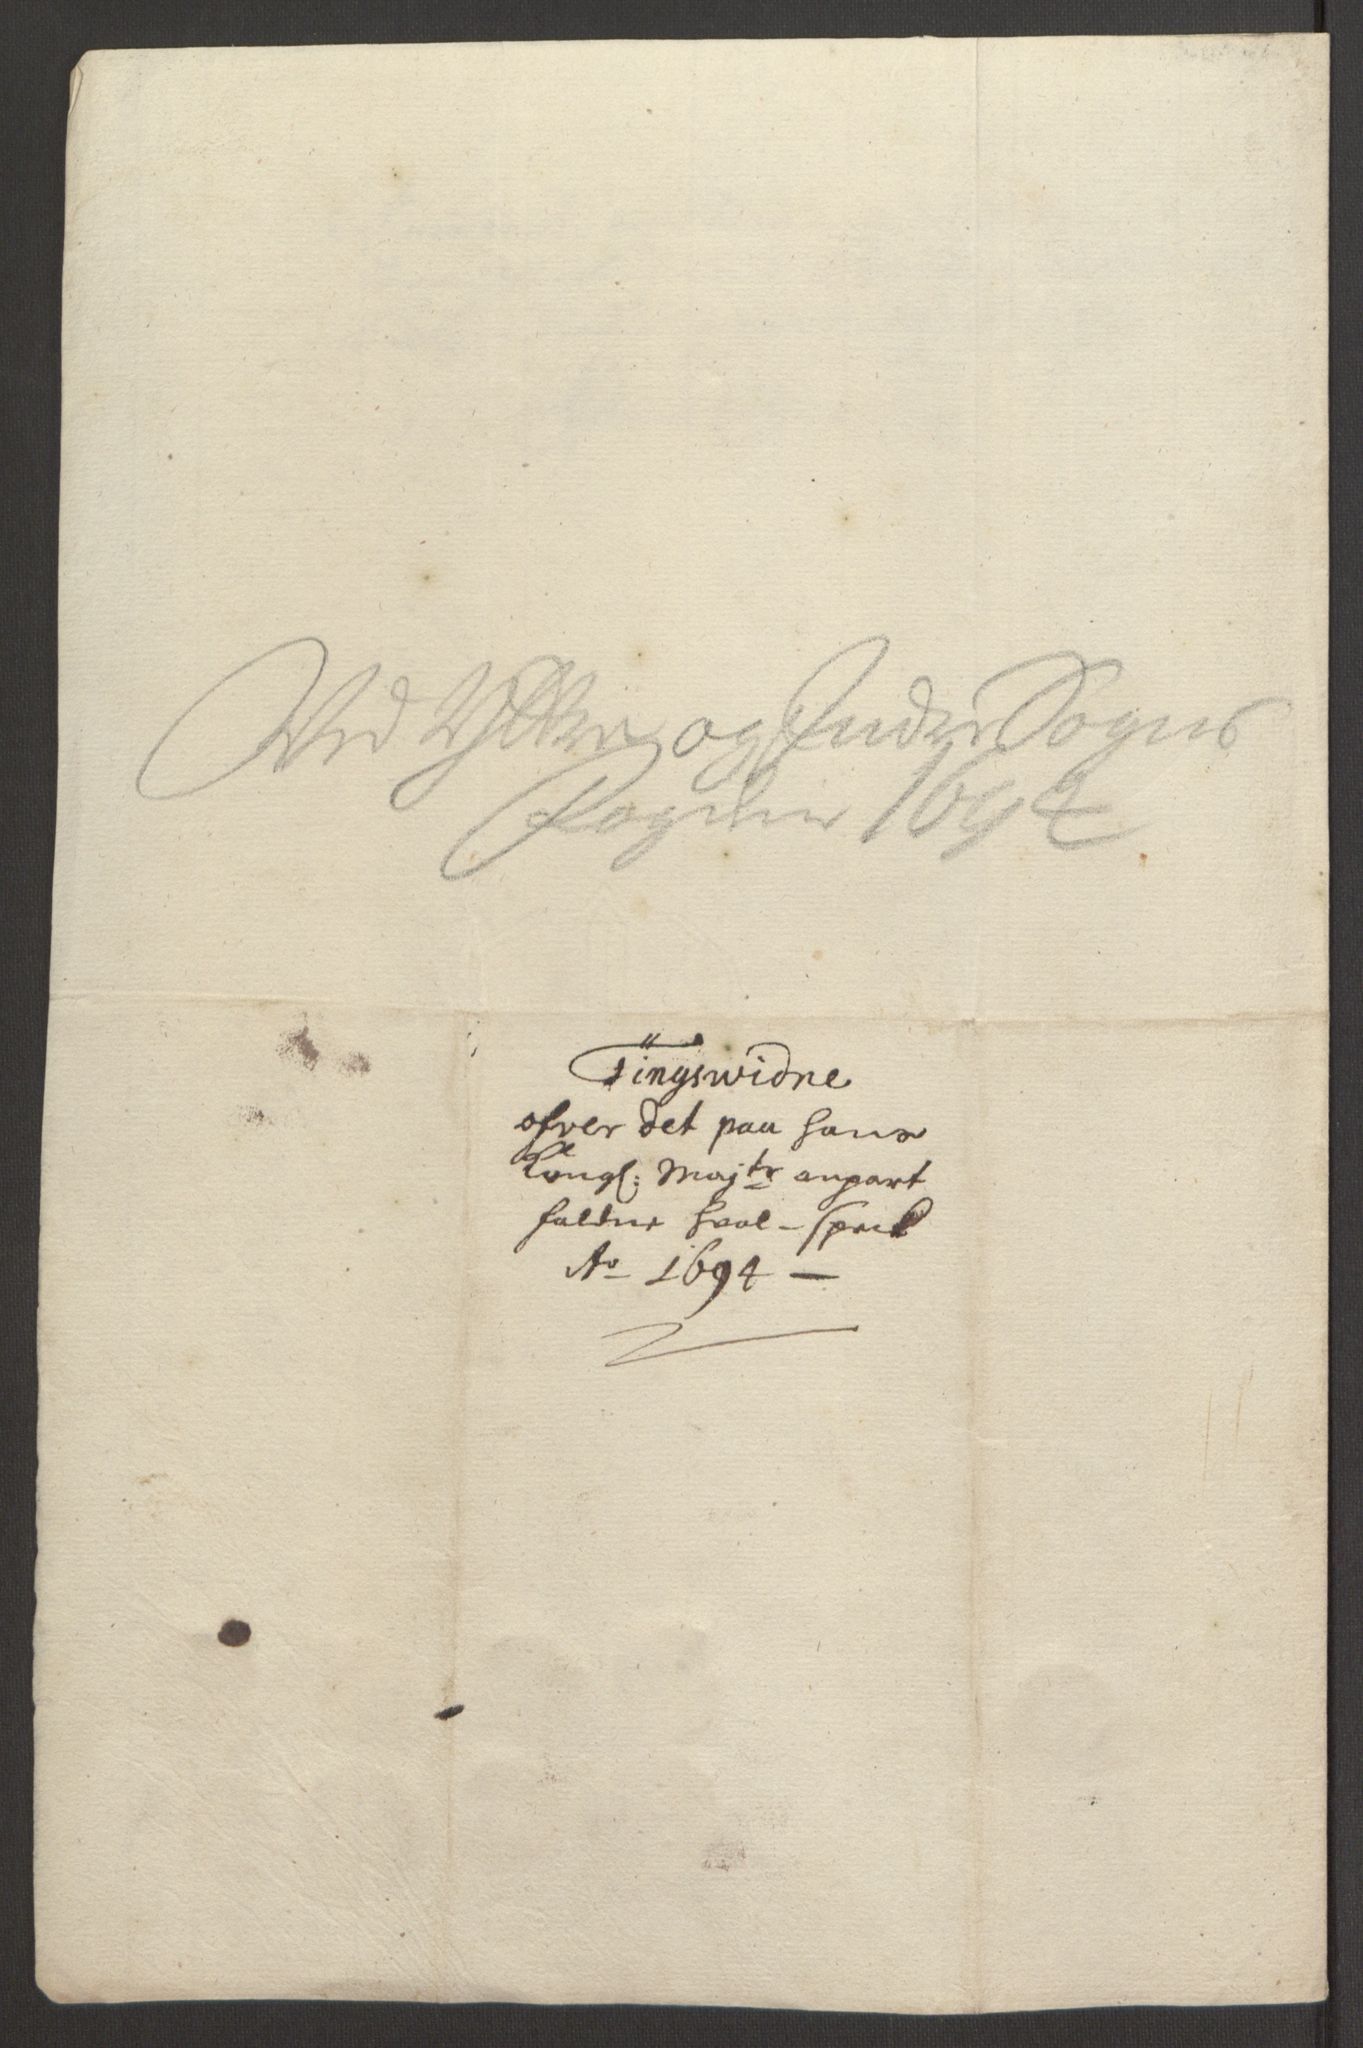 Ved Ytter og Inder Sogns
Fogderi 1694
Tingswidne
ofver det paa hans
Kongl: Maj:tz anpart
faldne hval-speck
Ao 1694 —